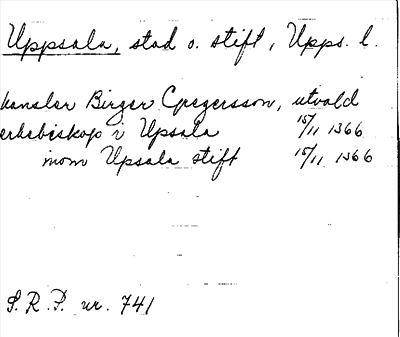 Uppsala, stad o. stift, Upps. l.
kansler Birger Gregersson, utvald
erkebiskop i Upsala 15/11 1366
inom Upsala stift 15/11 1366
S. R. P. nr. 741